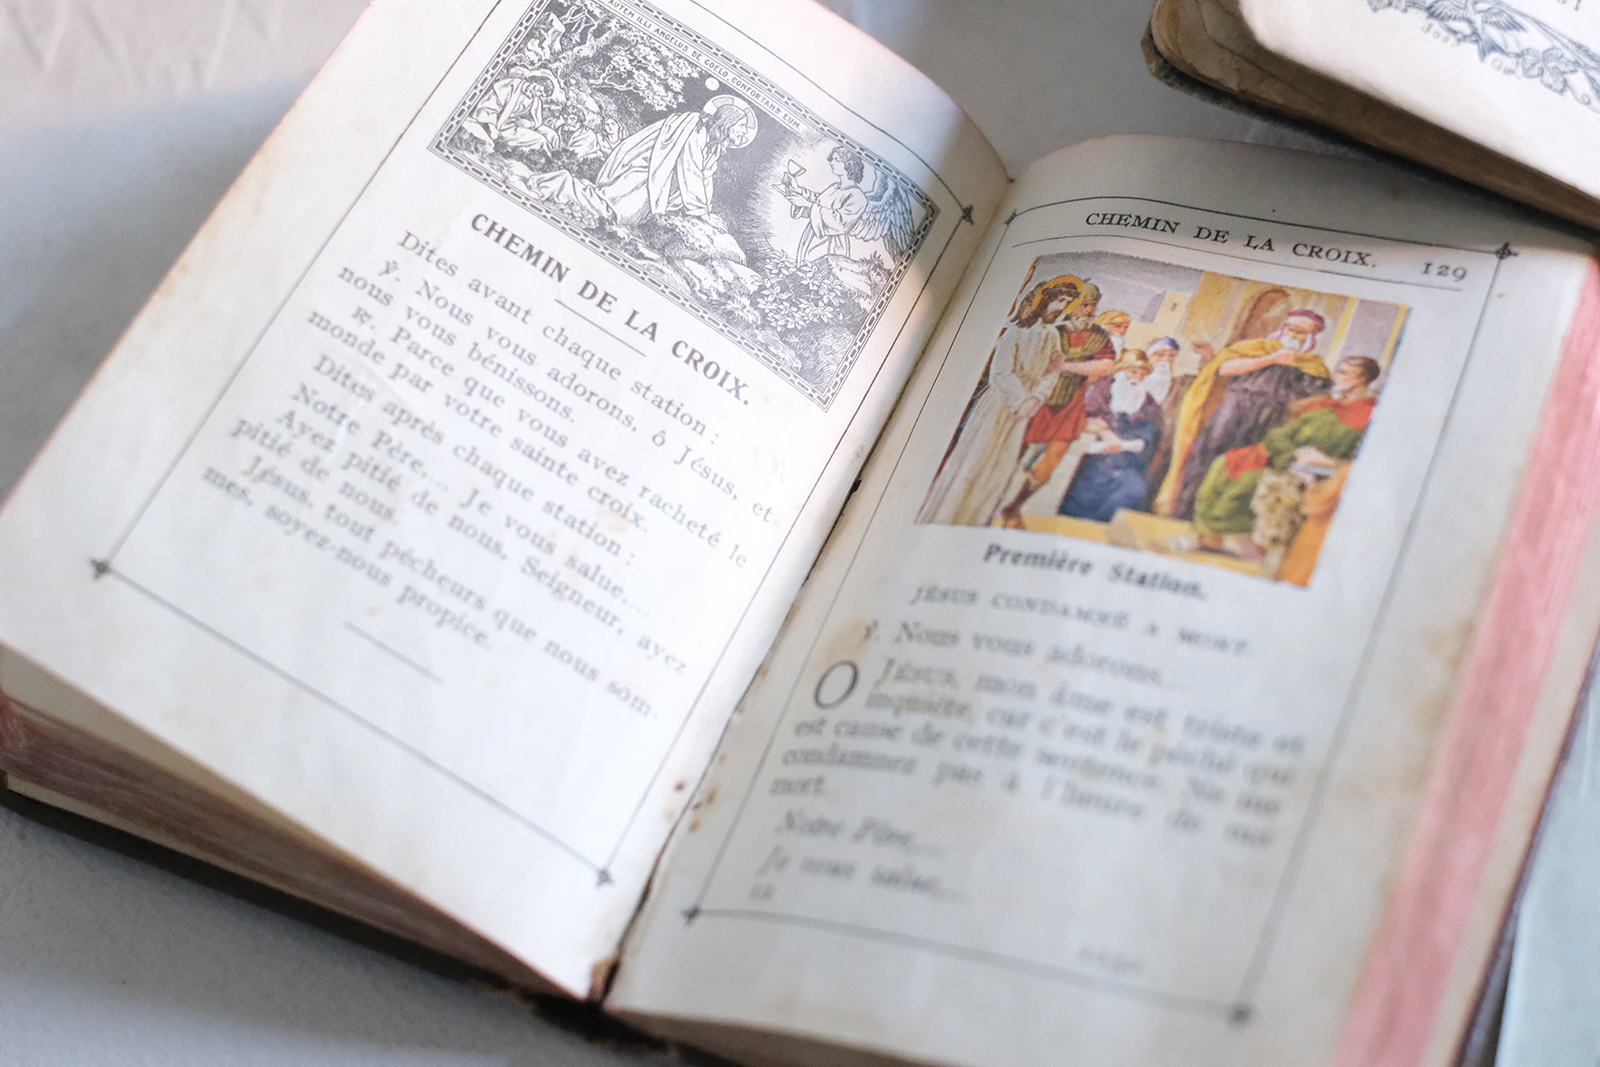 AUTEM ILLI ANGELUS DE COELO, CONFORTANS EUM.
CHEMIN DE LA CROIX.
Dites avant chaque station :
℣. Nous vous adorons, ô Jésus, et
nous vous bénissons.
℟. Parce que vous avez racheté le
monde par votre sainte croix.
Dites après chaque station :
Notre Père... Je vous salue....
Ayez pitié de nous, Seigneur, ayez
pitié de nous.
Jésus, tout pécheurs que nous som-
mes, soyez-nous propice.
CHEMIN DE LA CROIX. 129
Première Station.
JÉSUS CONDAMNÉ A MORT.
℣. Nous vous adorons...
O JÉSUS, mon âme est triste et
inquiète, car c'est le péché qui
est cause de cette sentence. Ne me
condamnez pas à l'heure de ma
mort.
Notre Père...
Je vous salue,...